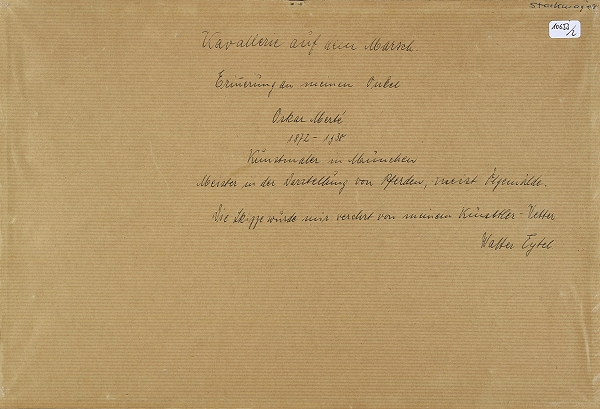 Stockwoger
10653/2
Kavallerie auf dem Marsch.
Erinerung an meinen Onkel
Oskar Merté
1872 - 1938
Kunstmaler in München
Meister in der Darstellung von Pferden, meist Ölgemälde.
Die Skizze wurde mir verehrt von meinem Künstler-Vetter
Walter Eytel